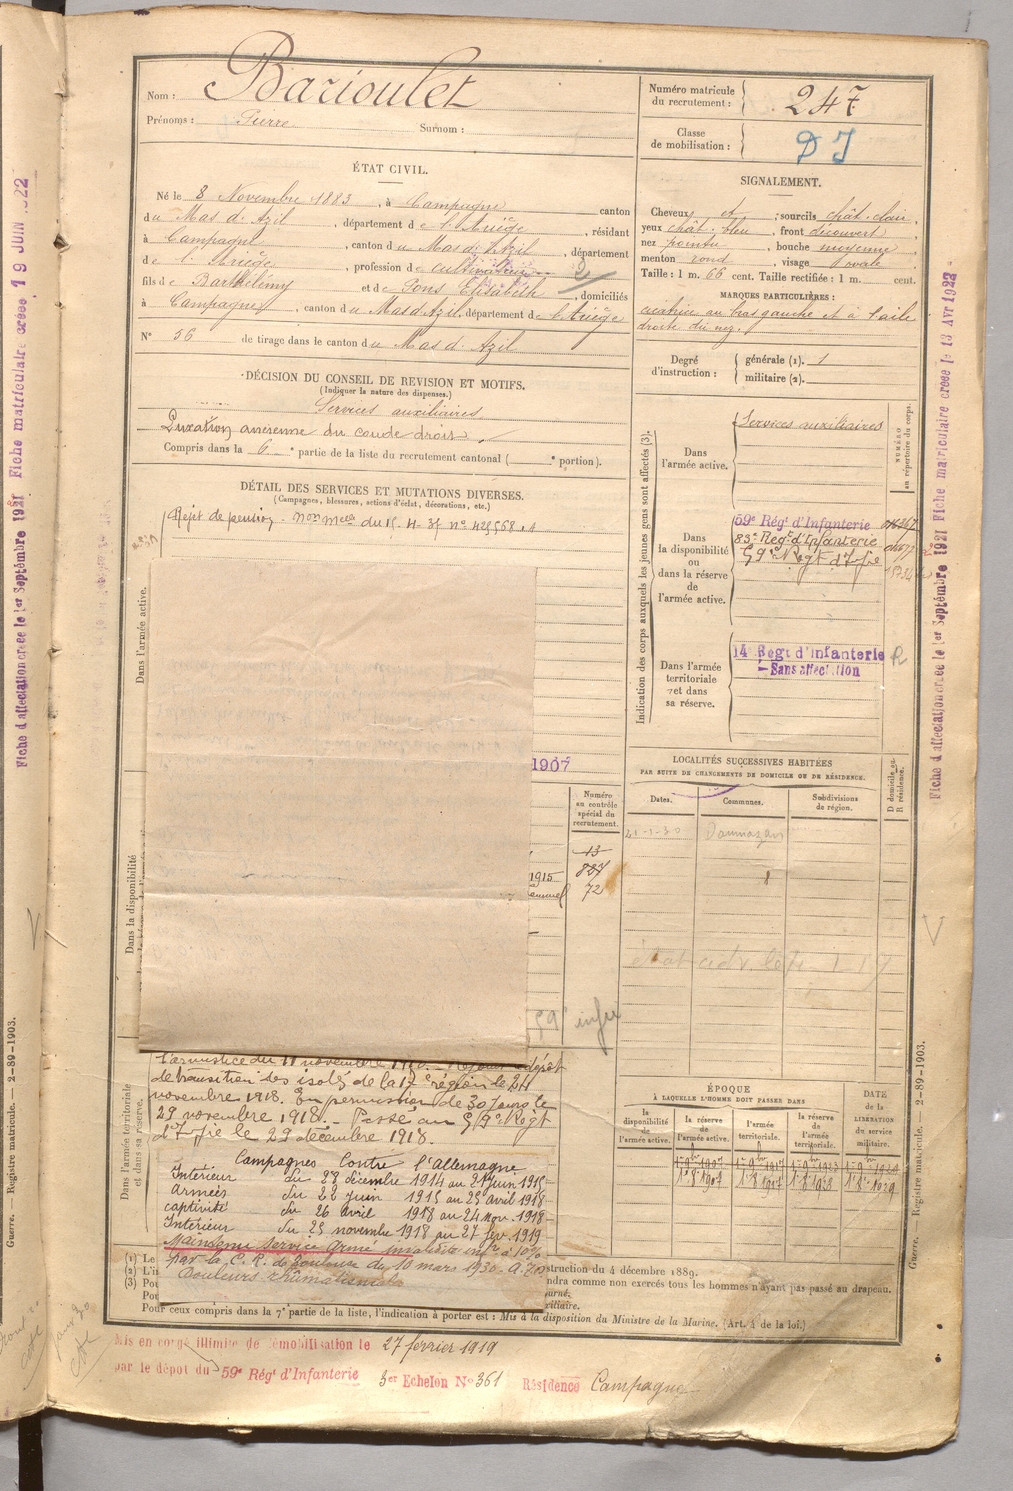 Nom : Barioulet
Prénoms : Pierre Surnom :
Numéro matricule du recrutement : 247
Classe de mobilisation :
ÉTAT CIVIL.
Né le 8 Novembre 1883, à Campagne canton
du Mas d'Azil, département de l'Ariège, résidant
à Campagne, canton du Mas d'Azil, département
de l'Ariège, profession de cultivateur
fils de Barthélémy et de Pons Elisabeth, domiciliés
à Campagne, canton du Mas d'Azil, département de l'Ariège
N° 56 de tirage dans le canton du Mas d'Azil
SIGNALEMENT.
Cheveux et ; sourcils chât. clair,
yeux chât. bleu, front découvert,
nez pointu, bouche moyenne
menton rond, visage ovale
Taille : 1 m. 66 cent. Taille rectifiée : 1 m. cent.
MARQUES PARTICULIÈRES :
cicatrice au bras gauche et à l'aile
droite du nez.
Degré d'instruction : générale (1). 1
militaire (2).
DÉCISION DU CONSEIL DE REVISION ET MOTIFS.
(Indiquer la nature des dispenses.)
Services auxiliaires
Luxation ancienne du coude droit
Compris dans la 6e partie de la liste du recrutement cantonal ( e portion).
DÉTAIL DES SERVICES ET MUTATIONS DIVERSES.
(Campagnes, blessures, actions d'éclat, décorations, etc.)
Rejet de pension
Dans l'armée active.
1907
Dans la disponibilité
Numéro au contrôle spécial du recrutement.
13
827
1915
72
Indication des corps auxquels les jeunes gens sont affectés (3).
NUMÉRO au répertoire du corps.
Dans l'armée active.
Services auxiliaires
Dans la disponibilité ou dans la réserve de l'armée active.
59e Régt d'Infanterie
83e Régt d'Infanterie
59e Régt d'Infie
Dans l'armée territoriale et dans sa réserve.
14 Régt d'Infanterie
Sans affectation
LOCALITÉS SUCCESSIVES HABITÉES
PAR SUITE DE CHANGEMENTS DE DOMICILE OU DE RÉSIDENCE.
Dates. Communes. Subdivisions de région. D domicile ou R résidence.
21-1-30 Daumazan
59e infie
l'armistice du 11 novembre 1918.
de transition des isolés de la 17e région le 24
novembre 1918. En permission de 30 jours le
29 novembre 1918. Passé au 59e Régt
d'Infie le 29 décembre 1918.
Campagnes Contre l'Allemagne
Intérieur du 28 décembre 1914 au 21 juin 1915
Armées du 22 juin 1915 au 25 avril 1918
captivité du 26 avril 1918 au 24 Nov. 1918
Intérieur du 25 novembre 1918 au 27 fév. 1919
Maintenu service armé invalidité infre à 10%
par la C. R. de Toulouse du 10 mars 1930
Douleurs rhumatismales
Dans l'armée territoriale et dans sa réserve.
ÉPOQUE
À LAQUELLE L'HOMME DOIT PASSER DANS
la disponibilité de l'armée active. la réserve de l'armée active. l'armée territoriale. la réserve de l'armée territoriale.
DATE de la LIBÉRATION du service militaire.
(1) Le
struction du 4 décembre 1889.
(2) L'i
ndra comme non exercés tous les hommes n'ayant pas passé au drapeau.
(3) Pou
Pou
Pour ceux compris dans la 7e partie de la liste, l'indication à porter est : Mis à la disposition du Ministre de la Marine. (Art. 4 de la loi.)
Mis en congé illimité de démobilisation le 27 février 1919
par le dépôt du 59e Régt d'Infanterie 3er Echelon No 361 Résidence Campagne
Guerre. — Registre matricule. — 2-89-1903.
Guerre. Registre matricule. — 2-89-1903.
Fiche d'affectation créée le 1er Septembre 1921 Fiche matriculaire créée 19 JUIN 1922
Fiche d'affectation créée le 1er Septembre 1921 Fiche matriculaire créée le 13 Avr 1922